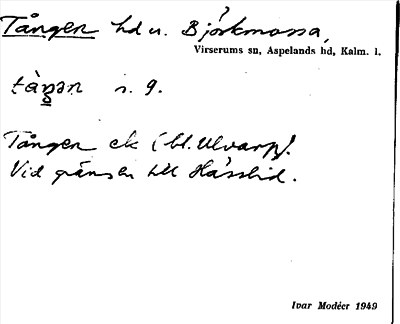 Tången hd u. Björkmossa,
Virserums sn, Aspelands hd, Kalm. l.
tàŋən n. 9.
Tången ek (bl. Ulvarp).
Vid gränsen till Hässlid.
Ivar Modéer 1949